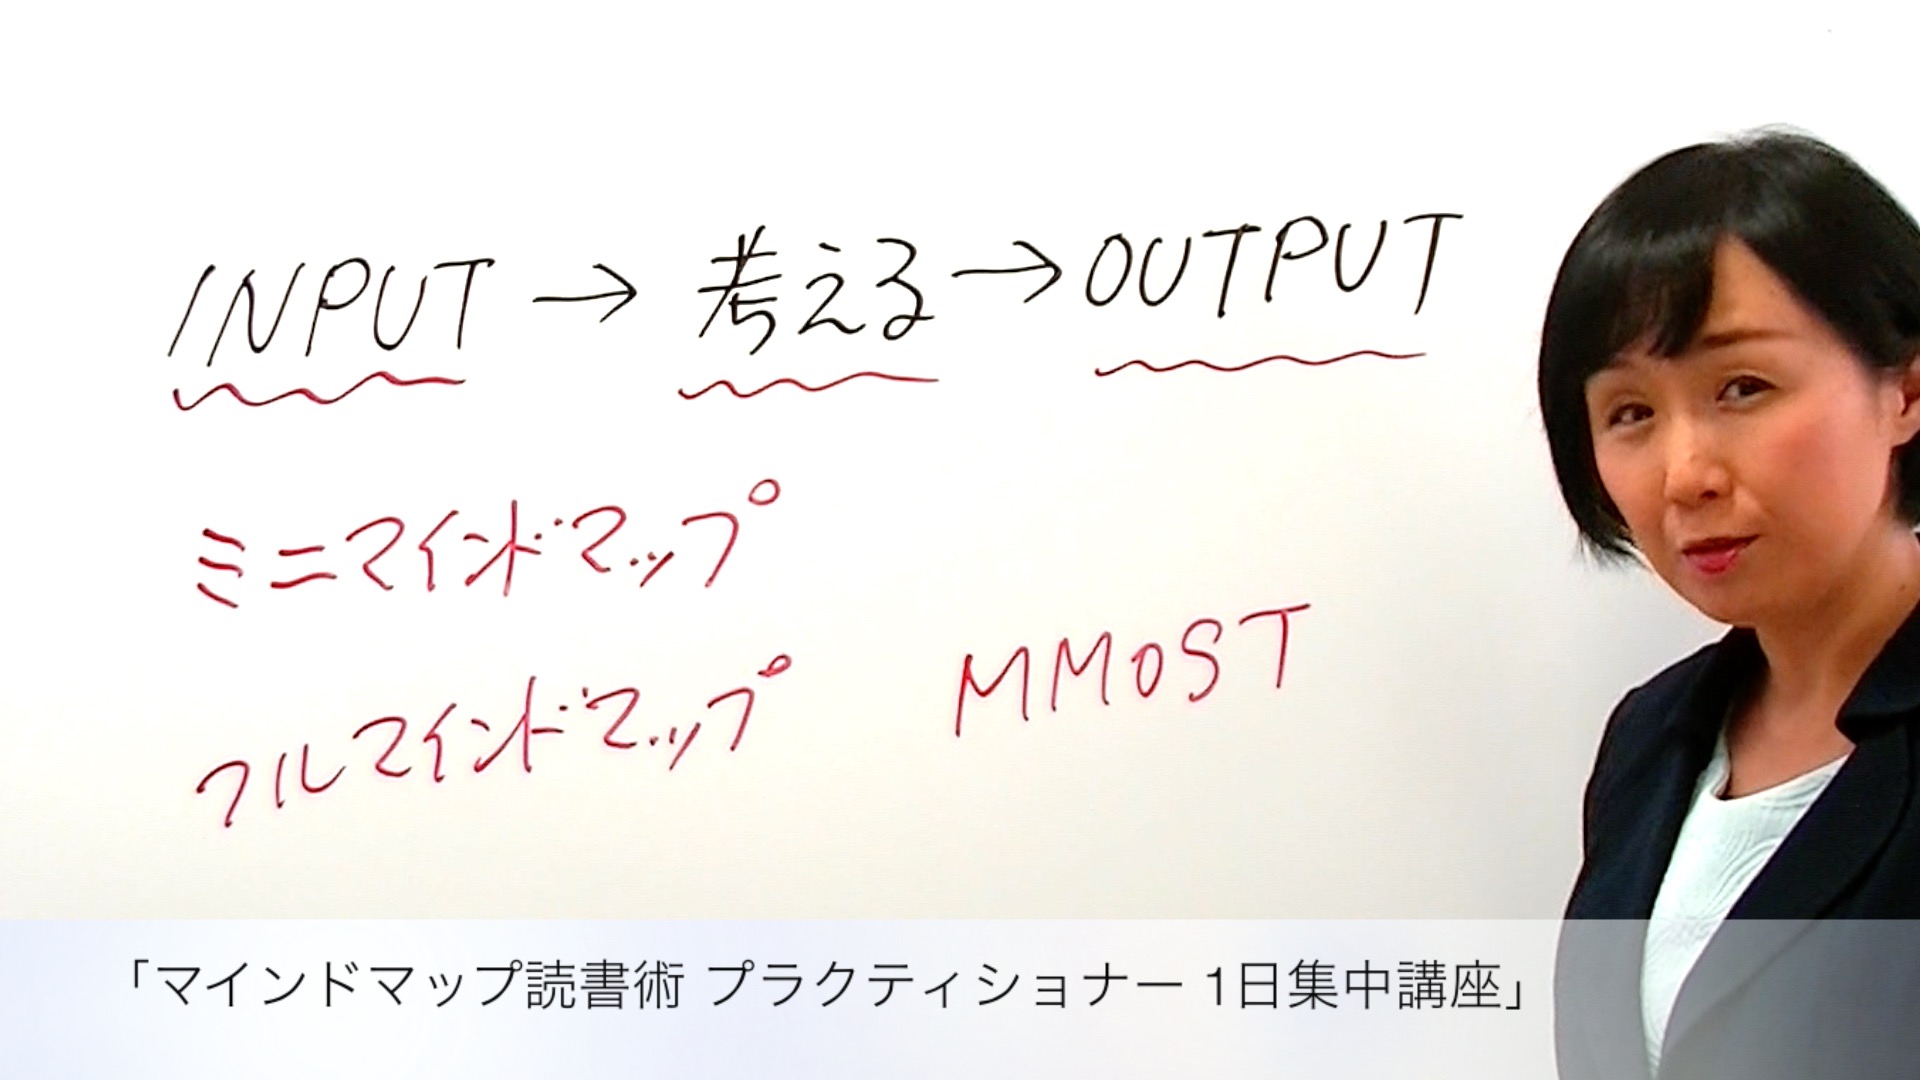 INPUT → 考える → OUTPUT
ミニマインドマップ
フルマインドマップ
MMOST
「マインドマップ読書術 プラクティショナー 1日集中講座」